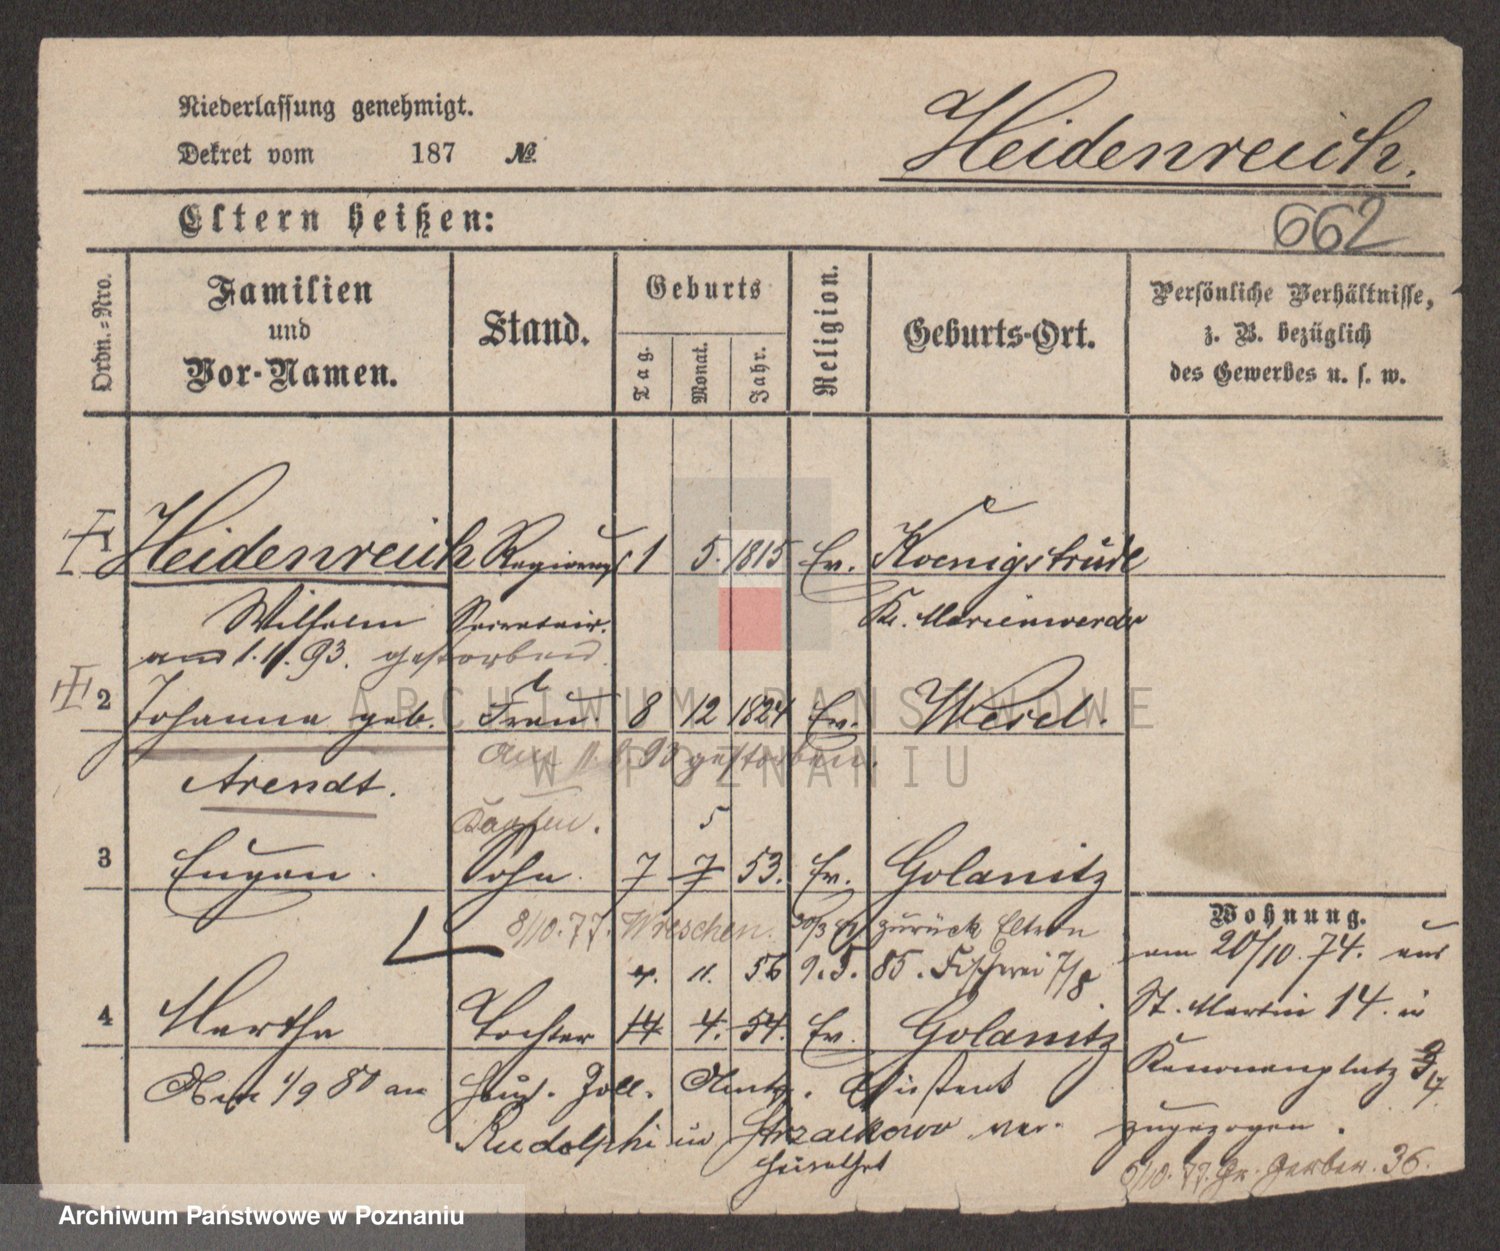 Niederlassung genehmigt.
Dekret vom 187 №
Heidenreich.
Eltern heißen:
662
Ordn.-Nro.
Familien
und
Vor-Namen.
Stand.
Geburts
Tag.
Monat.
Jahr.
Religion.
Geburts-Ort.
Persönliche Verhältnisse,
z. B. bezüglich
des Gewerbes u. s. w.
Heidenreich Regierungs 1 5. 1815 Ev. Koenigsbruch
Wilhelm Secretair. Kr. Marienwerder
am 1. 11. 93. gestorben.
2 Johanna geb. Frau. 8 12 1824 Ev. Wesel.
gestorben.
Arendt.
5
3 Eugen. Sohn. 7 7 53. Ev. Golanitz
8/10. 77. Wreschen. zurück Eltern
11. 56 85. Fischerei 7/8
4 Martha Tochter 14 4. 54. Ev. Golanitz
1/9 80 an Haupt. Zoll. Amts. Assistent
Rudolphi in Strzalkowo ver-
heirathet
Wohnung.
am 20/10. 74. aus
St. Martin 14. in
Kanonenplatz
zugezogen.
8/10. 77. Gr. Gerber. 36.
ARCHIWUM PAŃSTWOWE
W POZNANIU
Archiwum Państwowe w Poznaniu